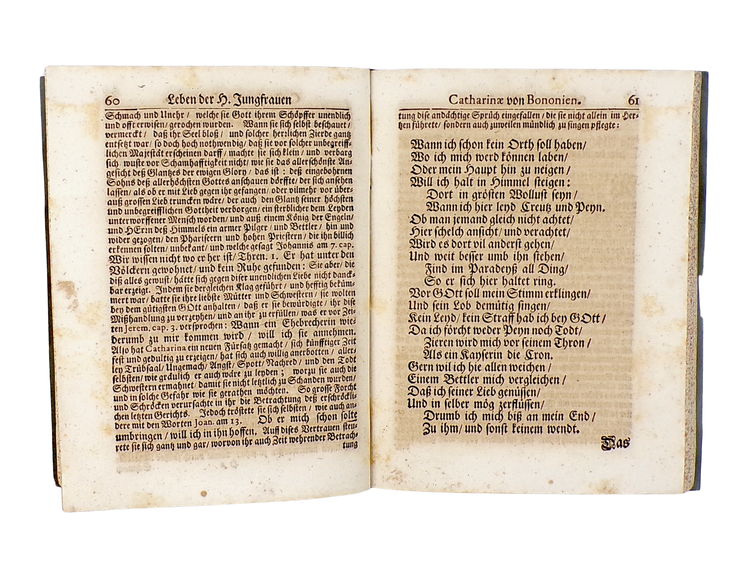 60 Leben der H. Jungfrauen
Schmach und Unehr / welche sie Gott ihrem Schöpffer unendlich
und offt erwisen / gerochen wurden. Wann sie sich selbst beschauet /
vermerckt / daß ihr Seel bloß / und solcher herrlichen Zierde gantz
entsetzt war / so doch hoch nothwendig / daß sie vor solcher unbegreiff-
lichen Majestät erscheinen darff / machte sie sich klein / und verbarg
sich / wuste vor Schamhafftigkeit nicht / wie sie das allerschönste An-
gesicht deß Glantzes der ewigen Glory / das ist: deß eingebohrnen
Sohns deß allerhöchsten Gottes anschauen dörffte / der sich ansehen
lassen / als ob er mit Lieb gegen ihr gefangen / oder vilmehr vor über-
auß grossen Lieb truncken wäre / der auch den Glantz seiner höchsten
und unbegreifflichen Gottheit verborgen / ein sterblicher dem Leyden
unterworffener Mensch worden / und auß einem König der Engeln /
und HErrn deß Himmels ein armer Pilger / und Bettler / hin und
wider gezogen / den Phariseern und hohen Priestern / die ihn billich
erkennen solten / unbekant / und welche gesagt Johannis am 7. cap.
Wir wissen nicht wo er her ist / Thren. 1. Er hat unter den
Völckern gewohnet / und kein Ruhe gefunden: Sie aber / die
diß alles gewust / hätte sich gegen diser unendlichen Liebe nicht danck-
bar erzeigt. Indem sie dergleichen Klag geführet / und hefftig beküm-
mert war / batte sie ihre liebste Mütter und Schwestern / sie wolten
bey dem gütigsten GOtt anhalten / daß er sie bewürdigte / ihr dise
Mißhandlung zu verzeyhen / und an ihr zu erfüllen / was er vor Zei-
ten Jerem. cap. 3. versprochen: Wann ein Ehebrecherin wie-
derumb zu mir kommen wird / will ich sie annehmen.
Also hat Catharina ein neuen Fürsatz gemacht / sich künfftiger Zeit
fest und gedultig zu erzeigen / hat sich auch willig anerbotten / aller-
ley Trübsaal / Ungemach / Angst / Spott / Nachred / und den Todt
selbsten / wie gräulich er auch wäre zu leyden; worzu sie auch die
Schwestern ermahnet / damit sie nicht letztlich zu Schanden wurden /
und in solche Gefahr wie sie gerathen möchten. So grosse Forcht
und Schröcken verursachte in ihr die Betrachtung deß erschröckli-
chen letzten Gerichts. Jedoch tröstete sie sich selbsten / wie auch an-
dere mit den Worten Joan. am 13. Ob er mich schon solte
umbringen / will ich in ihn hoffen. Auff dises Vertrauen steu-
rete sie sich gantz und gar / worvon ihr auch Zeit wehrender Betrach-
tung
Catharinæ von Bononien. 61
tung dise andächtige Sprüch eingefallen / die sie nicht allein im Her-
tzen führete / sondern auch zuweilen mündlich zu singen pflegte:
Wann ich schon kein Orth soll haben /
Wo ich mich werd können laben /
Oder mein Haupt hin zu neigen /
Will ich halt in Himmel steigen:
Dort in grösten Wollust seyn /
Wann ich hier leyd Creutz und Peyn.
Ob man jemand gleich nicht achtet /
Hier schelch ansicht / und verachtet /
Wird es dort vil anderst gehen /
Und weit besser umb ihn stehen /
Find im Paradeyß all Ding /
So er sich hier haltet ring.
Vor GOtt soll mein Stimm erklingen /
Und sein Lob demütig singen /
Kein Leyd / kein Straff hab ich bey GOtt /
Da ich förcht weder Peyn noch Todt /
Zieren wird mich vor seinem Thron /
Als ein Kayserin die Cron.
Gern wil ich hie allen weichen /
Einem Bettler mich vergleichen /
Daß ich seiner Lieb genüssen /
Und in selber mög zerflüssen /
Drumb ich mich biß an mein End /
Zu ihm / und sonst keinem wendt.
Das